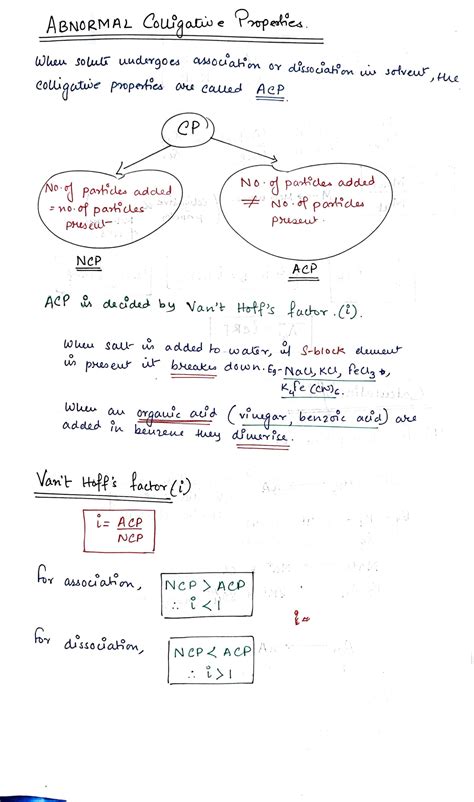 ABNORMAL Colligative Properties.
When solute undergoes association or dissociation in solvent, the
colligative properties are called ACP.
CP
No. of particles added
= no. of particles
present
NCP
No. of particles added
≠ No. of particles
present.
ACP
ACP is decided by Van't Hoff's factor.(i).
When salt is added to water, if S-block element
is present it breaks down. Eg- NaCl, KCl, FeCl3,
K4Fe(CN)6.
When an organic acid (vinegar, benzoic acid) are
added in benzene they dimerise.
Van't Hoff's factor (i)
i = ACP/NCP
for association,
NCP > ACP
∴ i < 1
i=
for dissociation,
NCP < ACP
∴ i > 1